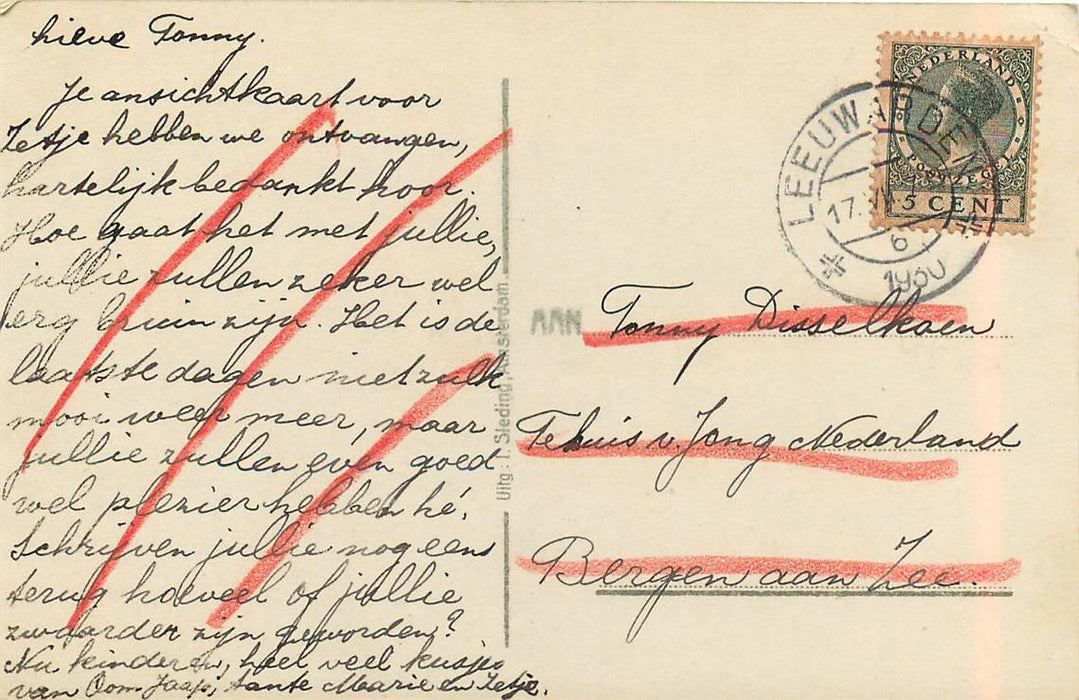 Lieve Tonny.
Je ansichtkaart voor
Zetje hebben we ontvangen,
hartelijk bedankt hoor.
Hoe gaat het met jullie,
jullie zullen zeker wel
erg bruin zijn. Het is de
laatste dagen niet zulk
mooi weer meer, maar
jullie zullen even goed
wel plezier hebben hé.
Schrijven jullie nog eens
terug hoeveel of jullie
zwaarder zijn geworden?
Nu kinderen, heel veel kusjes
van Oom Jaap, tante Marie en Zetje.
Uitg.: Sleding, Amsterdam
NEDERLAND
POSTZEGEL
5 CENT
LEEUWARDEN
17
6
1930
AAN
Tonny Disselkoen
Tehuis v. Jong Nederland
Bergen aan Zee.